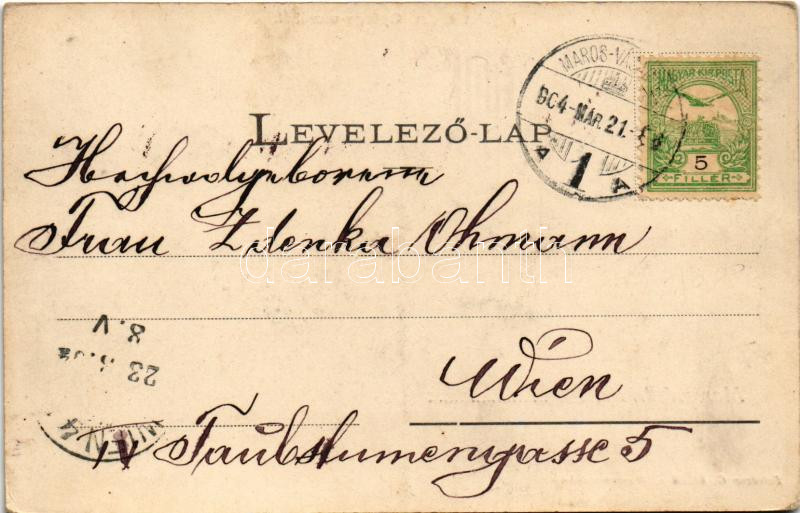 LEVELEZŐ-LAP
MAROS-VÁS
904-MÁR.21.
1
A A
MAGYAR KIR. POSTA
5
FILLÉR
Hochwolgeborene
Frau Zdenka Ohmann
darabanth
8.V
23
WIEN 4
Wien
IV Taubstumengasse 5